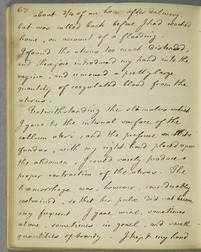 60 about 3/4 of an hour after delivery,
but was called back before I had reached
home, on account of a flooding.
I found the uterus too much distended,
and therefore introduced my hand into the
vagina, and removed a pretty large
quantity of coagulated blood from the
uterus.
Notwithstanding the stimulus which
I gave to the internal surface of the
uterus, and the pressure on the
fundus, with my right hand placed upon
the abdomen, I could rarely produce a
proper contraction of the uterus. The
hemorrhage was, however, considerably
restrained, so that her pulse did not become
very frequent. I gave wine, sometimes
alone, sometimes in gruel, and small
quantities of brandy. I kept my hand